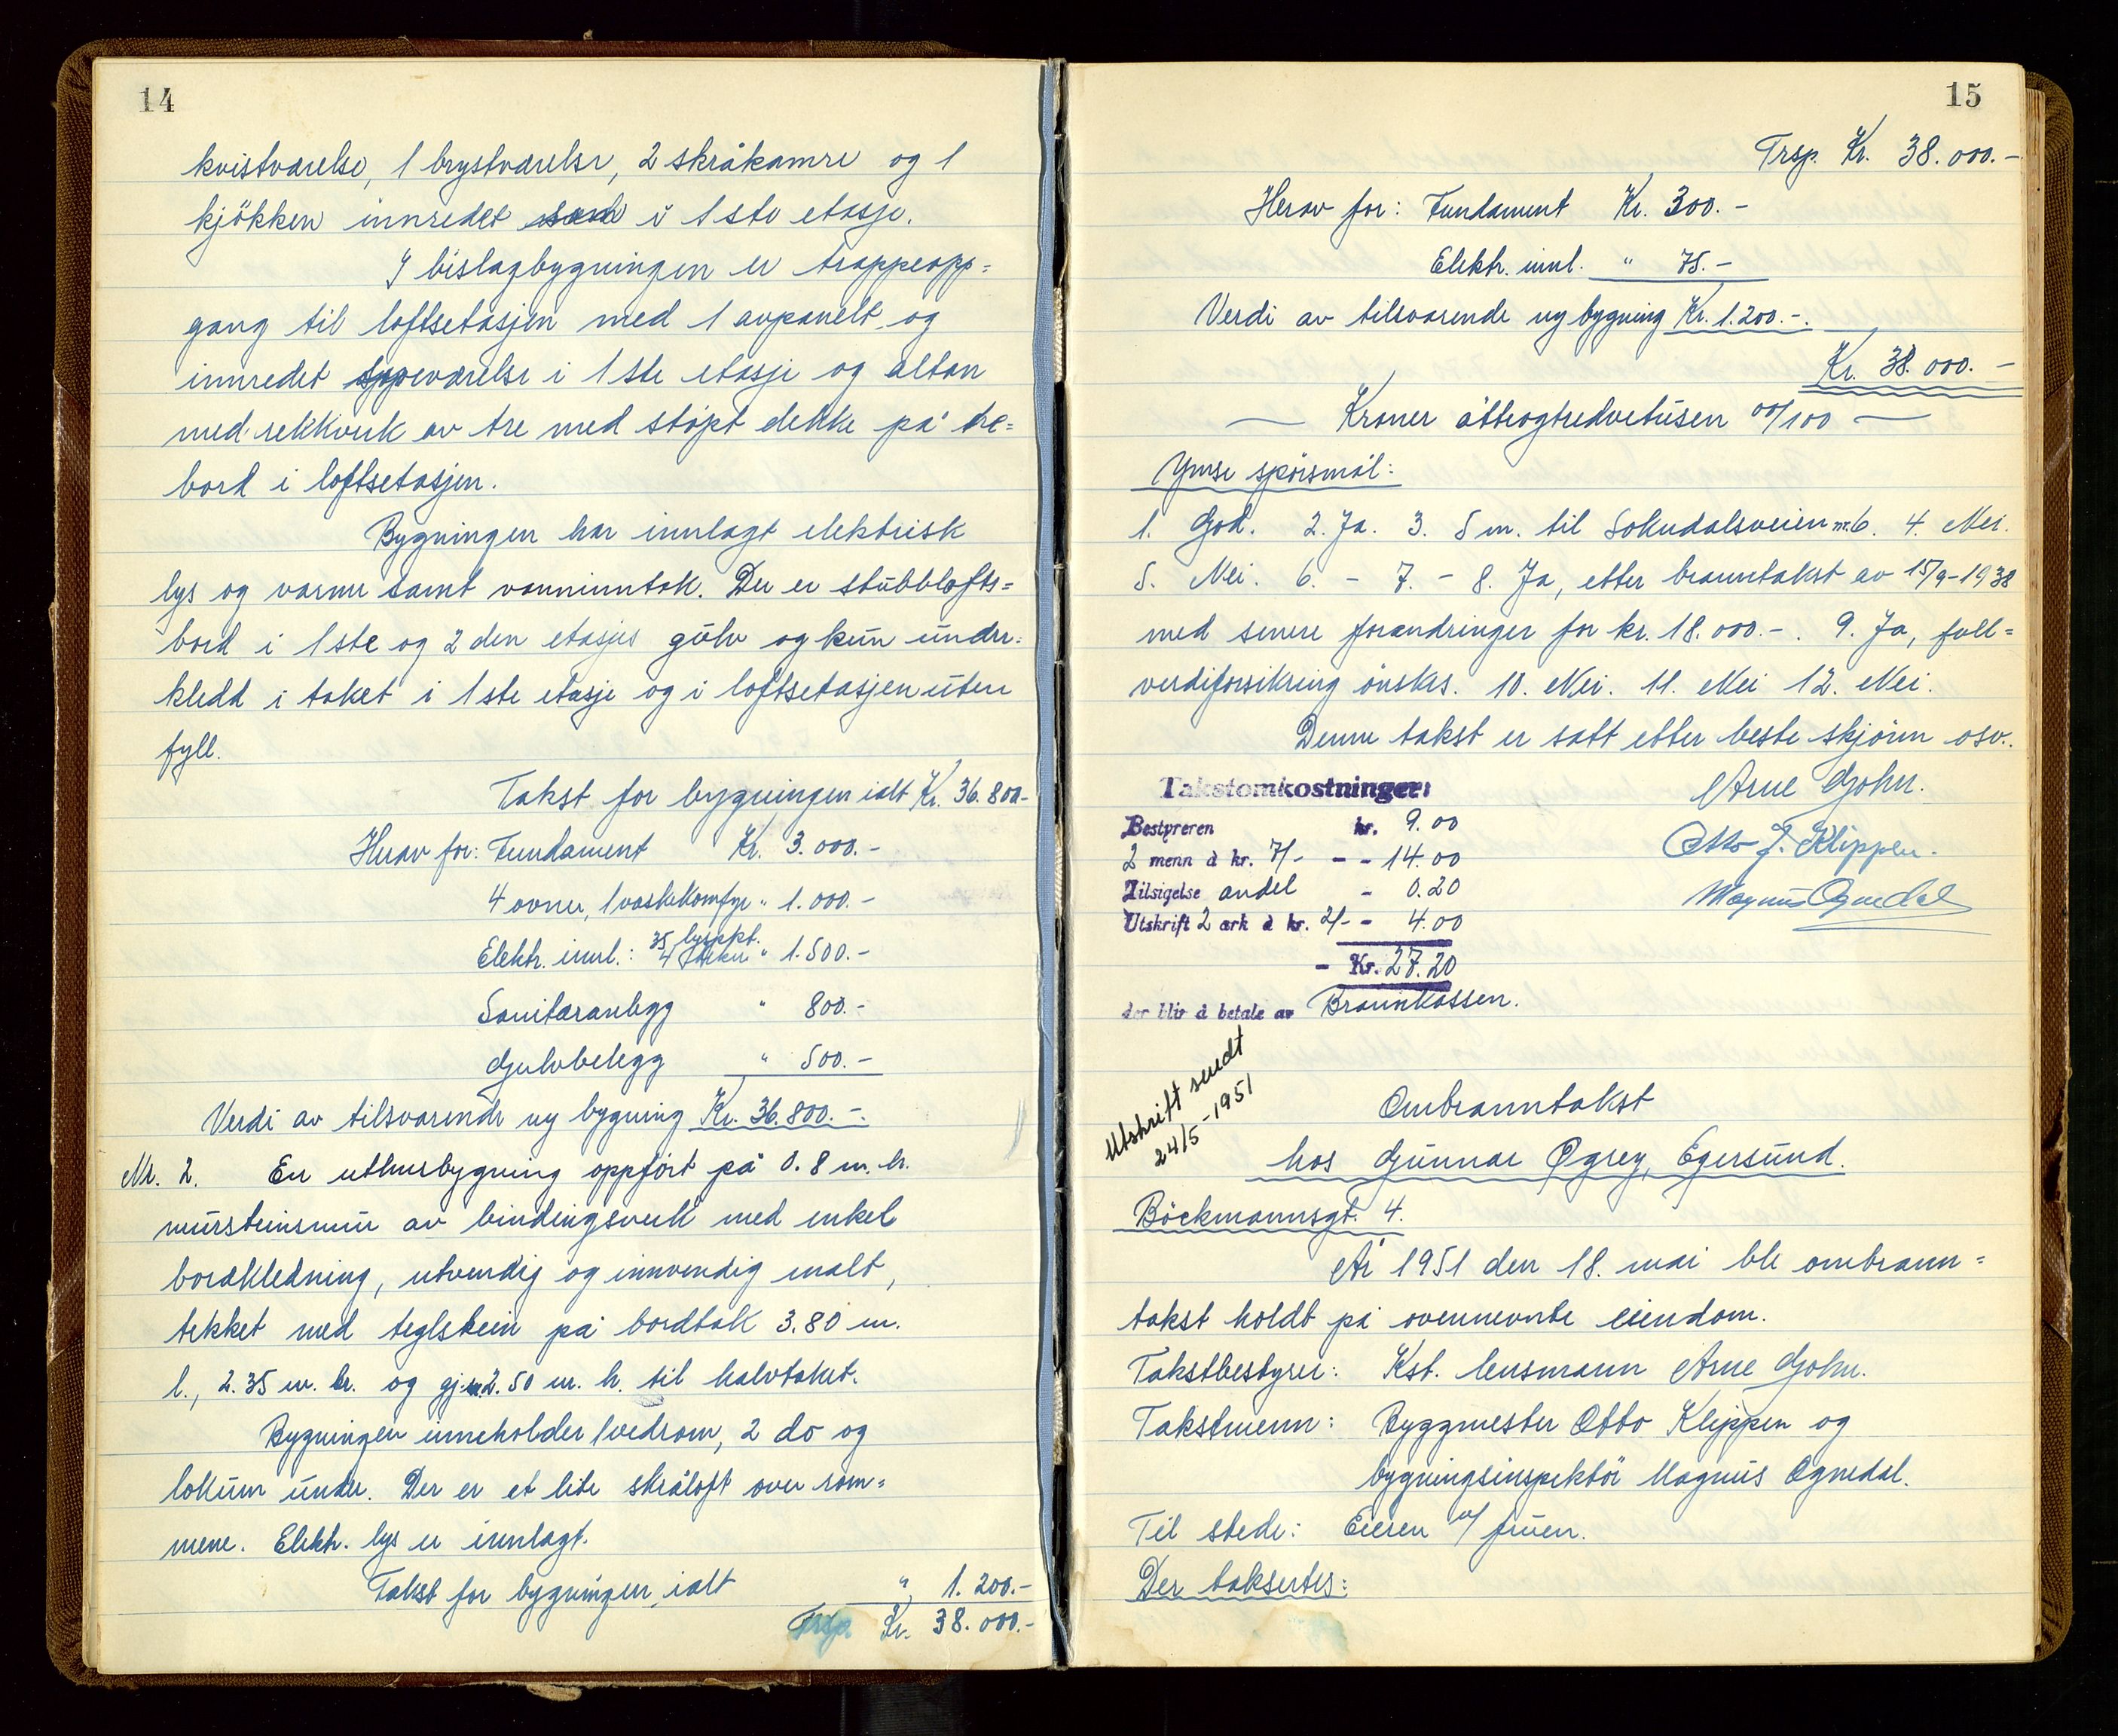 14
kvistværelse, 1 brystværelse, 2 skråkamre og 1
kjökken innredet som i 1ste etasje.
I bislagbygningen er trappeopp=
gang til loftsetasjen med 1 avpanelt og
innredet syeværelse i 1ste etasje og altan
med rekkverk av tre med stöpt dekke på tre=
bord i loftsetasjen.
Bygningen har innlagt elektrisk
lys og varme samt vanninntak. Der er stubblofts=
bord i 1ste og 2den etasjes gulv og kun under=
kledd i taket i 1ste etasje og i loftsetasjen uten
fyll.
Takst for bygningen ialt Kr. 36.800-
Herav for: Fundament Kr. 3.000.-
4 ovner, 1 vaskekomfyr " 1.000.-
Elektr. innl.: 35 lyspkt. 4 " 1.500.-
Sanitæranlegg " 800.-
Gulvbelegg " 500.-
Verdi av tilsvarende ny bygning Kr. 36.800.-.
Nr. 2. En uthusbygning oppfört på 0.8 m. h.
mursteinsmur av bindingsverk med enkel
bordkledning, utvendig og innvendig malt,
tekket med teglstein på bordtak 3.80 m.
l., 2.35 m. br. og gj.sn. 2.50 m. h. til halvtaket.
Bygningen inneholder 1 vedrom, 2 do og
lokum under. Der er et lite skråloft over rom=
mene. Elektr. lys er innlagt.
Takst for bygningen, ialt " 1.200.-
Trsp. Kr. 38.000.-
15
Trsp. Kr. 38.000.-
Herav for: Fundament Kr. 300.-
Elektr. innl. " 75.-
Verdi av tilsvarende ny bygning Kr. 1.200.-.
Kr. 38.000.-
Kroner åtteogtredvetusen 00/100
Ymse spörsmål:
1. God. 2. Ja. 3. 5 m. til Sokndalsveien nr. 6. 4. Nei.
5. Nei. 6. - 7. - 8. Ja, etter branntakst av 15/9-1938
med senere forandringer for kr. 18.000.-. 9. Ja, full=
verdiforsikring önskes. 10. Nei. 11. Nei 12. Nei.
Denne takst er satt etter beste skjönn osv..
Arne Gohn.
Otto J. Klippen.
Magnus Ognedal
Takstomkostninger:
Bestyreren kr. 9.00
2 menn à kr. 7/- - - 14.00
Tilsigelse andel - 0.20
Utskrift 2 ark à kr. 2/- - 4.00
- Kr. 27.20
der blir å betale av Brannkassen.
Utskrift sendt
24/5-1951
Ombranntakst
hos Gunnar Øgrey, Egersund.
Böckmannsgt. 4.
År 1951 den 18. mai ble ombrann=
takst holdt på ovennevnte eiendom.
Takstbestyrer: Kst. lensmann Arne Gohn.
Takstmenn: Byggmester Otto Klippen og
bygningsinspektör Magnus Ognedal.
Til stede: Eieren v/ fruen.
Der taksertes: